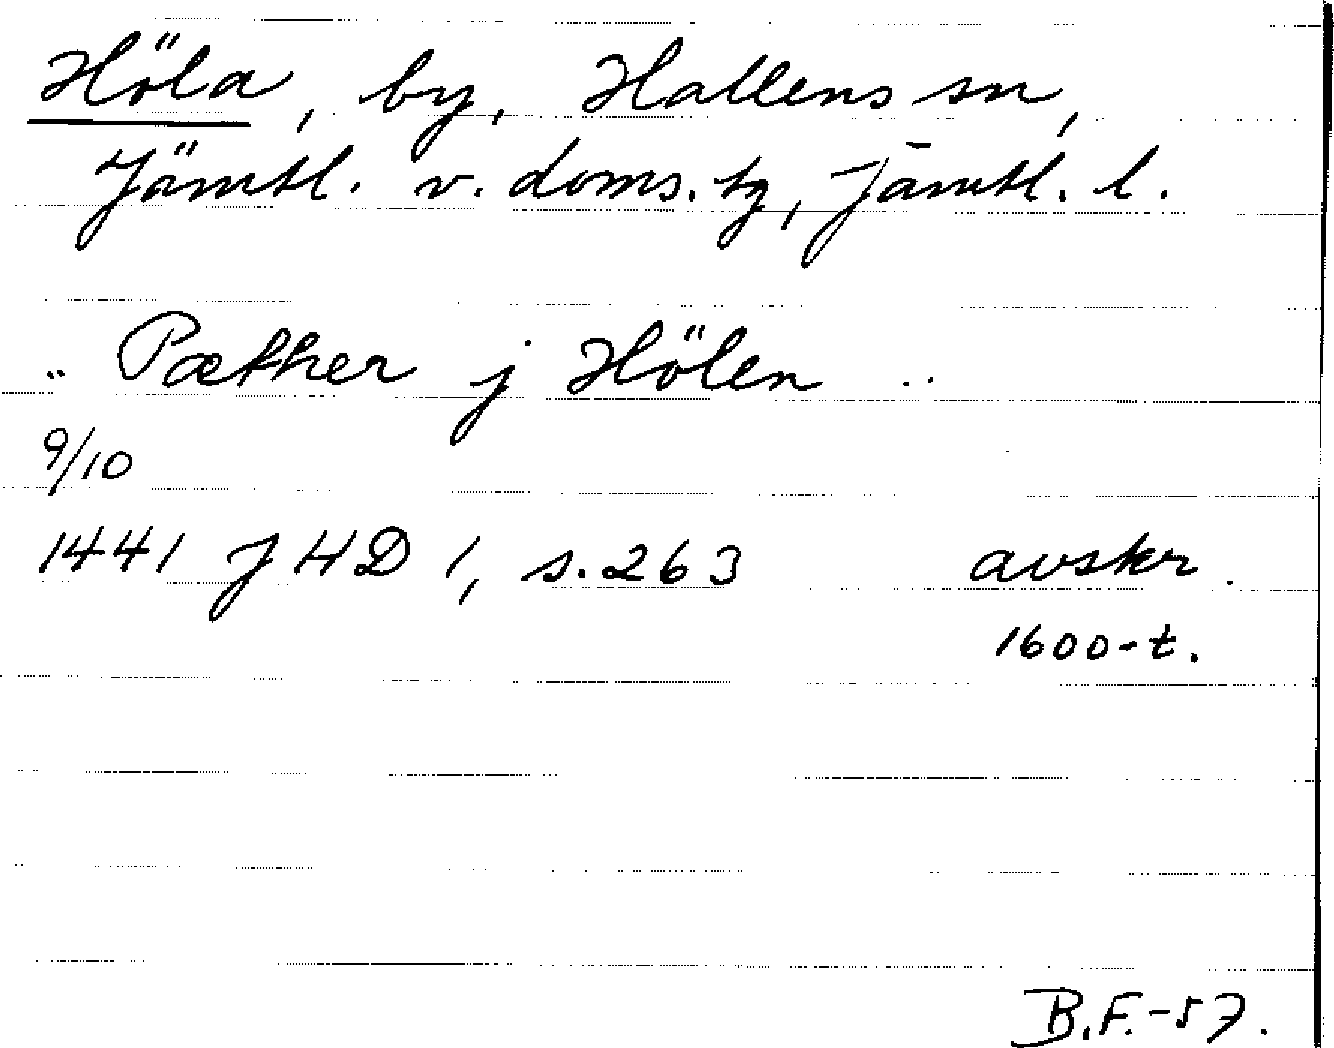 Höla, by, Hallens sn,
Jämtl. v. doms. tg, Jämtl. l.
.. Pæther j Hölen ..
9/10
1441 JHD 1, s. 263 avskr.
1600-t.
B.F.-57.